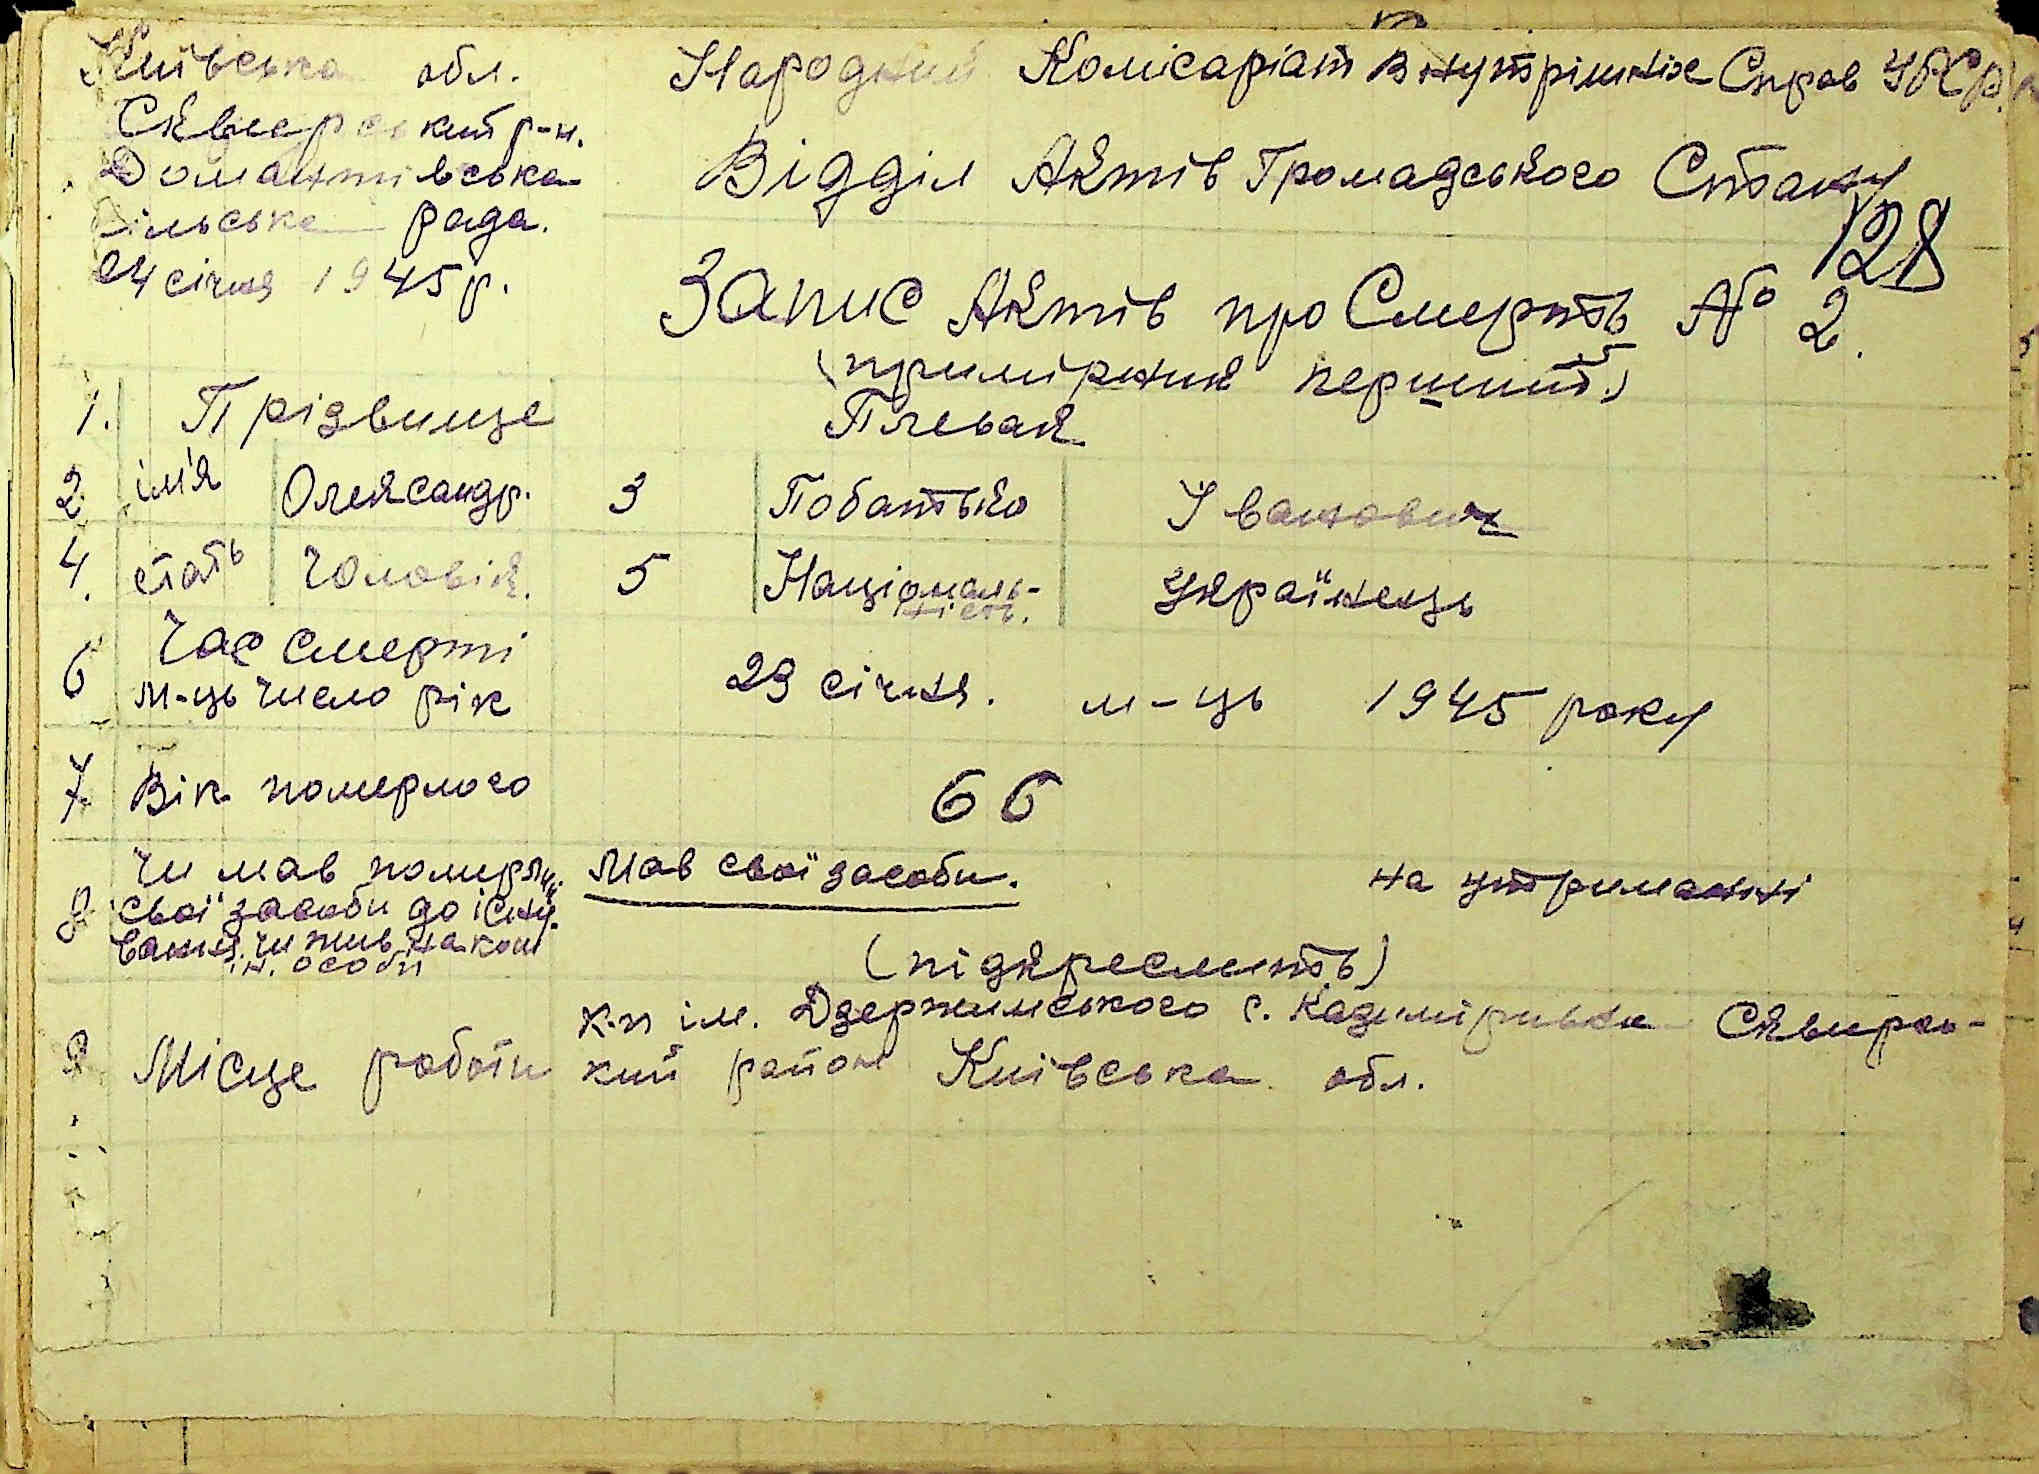 Київська обл.
Сквирський р-н.
Домантівська
сільська рада.
24 січня 1945 р.
Народний Комісаріат Внутрішніх Справ УРСР
Відділ Актів Громадського Стану
128
Запис Актів про Смерть № 2.
(примірник перший)
1. Прізвище Плевак
2. ім'я Олександр. 3 Побатько Іванович
4. стать Чоловік. 5 Національ-
ність. Українець
6 Час смерті
м-ць число рік 23 січня. м-ць 1945 року
7 Вік померлого 66
8 Чи мав померл. Мав свої засоби. на утриманні
свої засоби до існу-
вання. чи жив на кош
ін. особи (підкреслить)
9 Місце роботи к-п ім. Дзержинського с. Казимірівка Сквирсь-
кий район Київська обл.